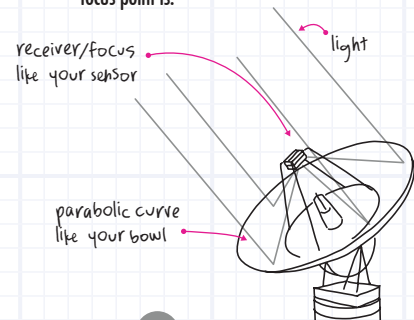 focus point is.
light
receiver/focus
like your sensor
parabolic curve
like your bowl